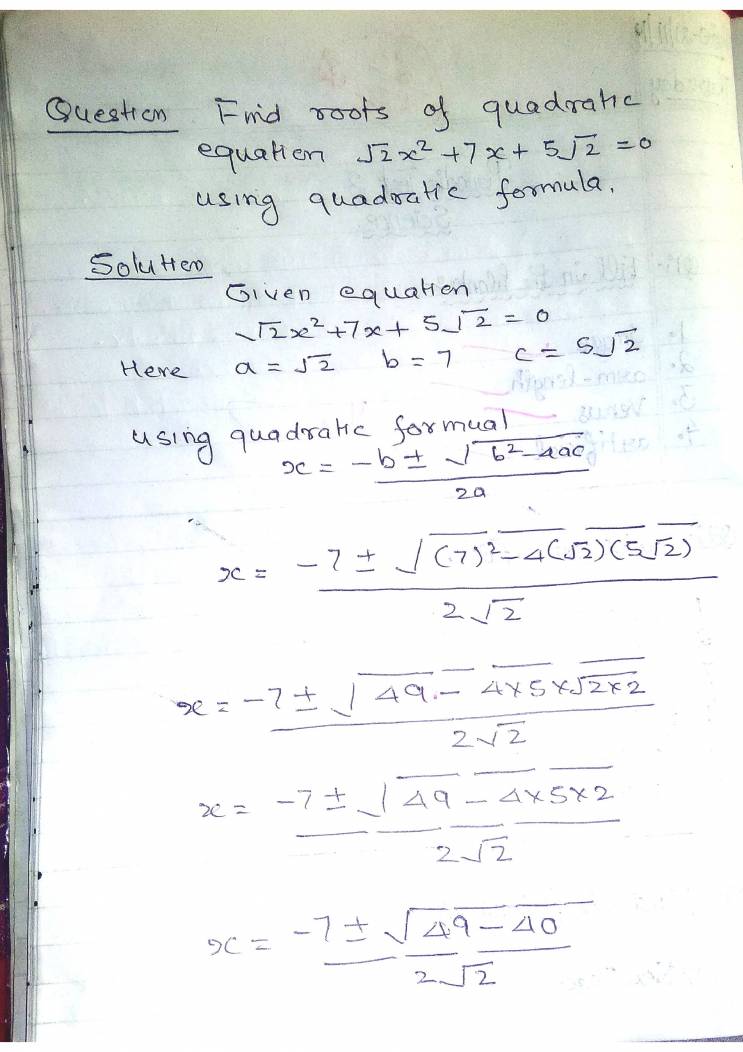 Question Find roots of quadratic
equation √2x² + 7x + 5√2 = 0
using quadratic formula.
Solution
Given equation
√2x² + 7x + 5√2 = 0
Here a = √2 b = 7 c = 5√2
using quadratic formual
x = -b ± √b² - 4ac
2a
x = -7 ± √(7)² - 4(√2)(5√2)
2√2
x = -7 ± √49 - 4×5×√2×2
2√2
x = -7 ± √49 - 4×5×2
2√2
x = -7 ± √49 - 40
2√2